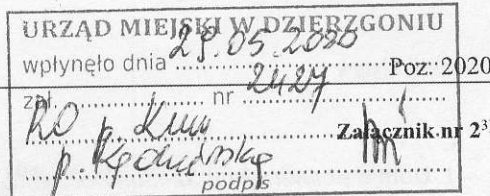 URZĄD MIEJSKI W DZIERZGONIU
wpłynęło dnia 29.05.2020
Poz. 2020
zał. nr 2427
RO p.
Załącznik nr 2³
p.
podpis